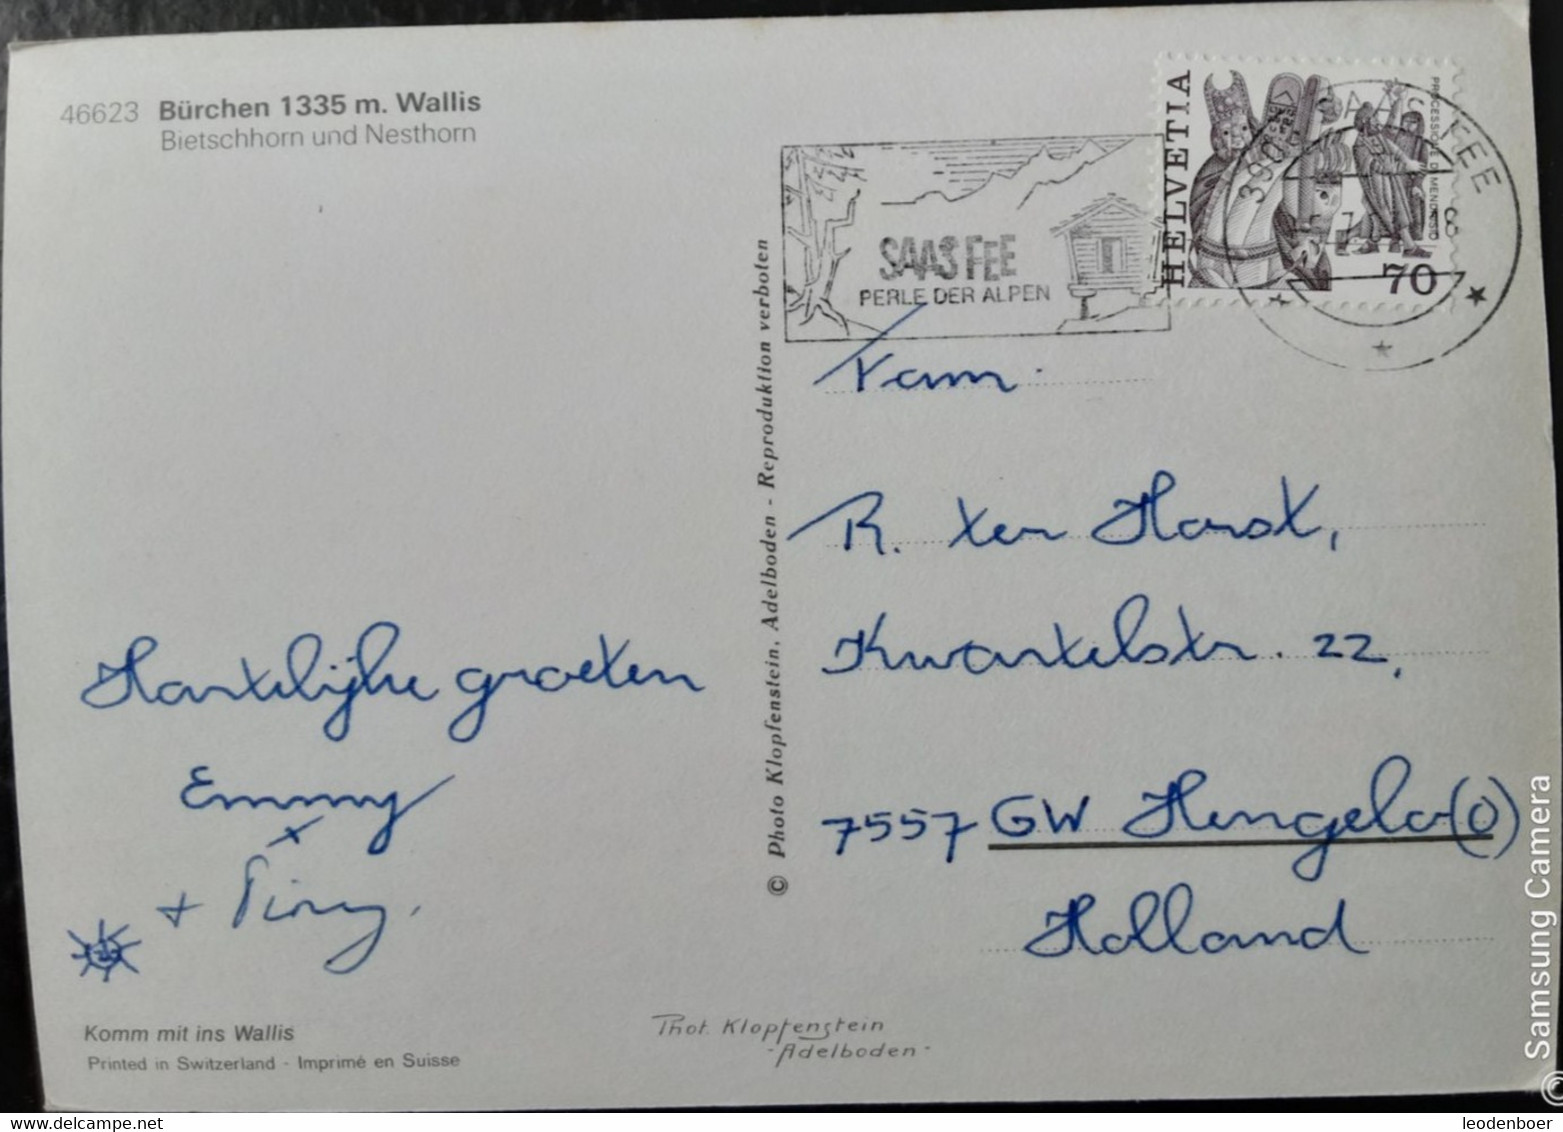 46623 Bürchen 1335 m. Wallis
Bietschhorn und Nesthorn
Hartelijke groeten
Emmy
+ Tiny.
Komm mit ins Wallis
Printed in Switzerland - Imprimé en Suisse
© Photo Klopfenstein, Adelboden - Reproduktion verboten
Phot. Klopfenstein
- Adelboden -
SAAS FEE
PERLE DER ALPEN
HELVETIA
PROCESSIONE DI MENDRISIO
70
3906 SAAS-FEE
18
Fam.
R. ter Horst,
Kwartelstr. 22,
7557 GW Hengelo (O)
Holland
© Samsung Camera
leodenboer